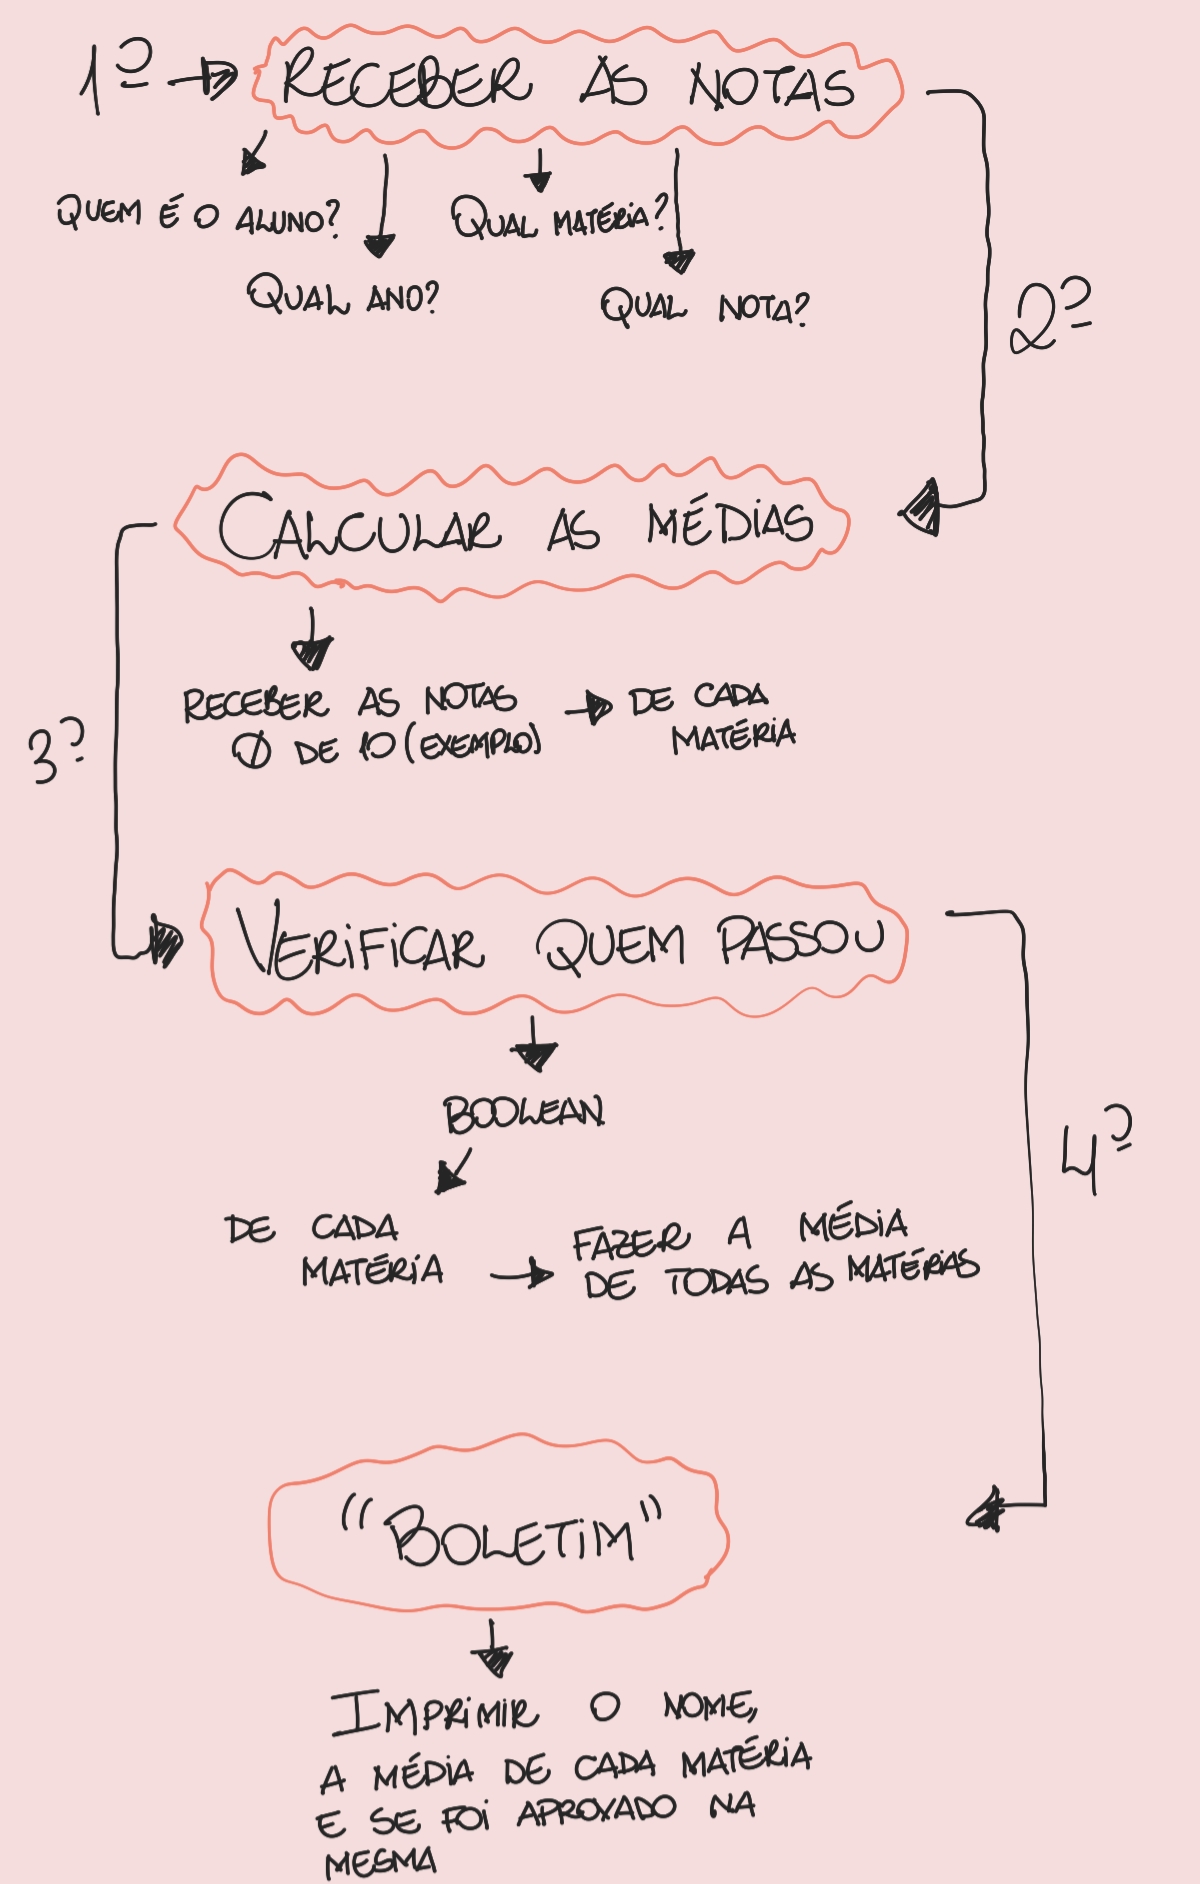 1º → RECEBER AS NOTAS
QUEM É O ALUNO?
QUAL MATÉRIA?
QUAL ANO?
QUAL NOTA?
2º
CALCULAR AS MÉDIAS
RECEBER AS NOTAS → DE CADA
0 DE 10 (EXEMPLO)
MATÉRIA
3º
VERIFICAR QUEM PASSOU
BOOLEAN
4º
DE CADA
MATÉRIA → FAZER A MÉDIA
DE TODAS AS MATÉRIAS
"BOLETIM"
IMPRIMIR O NOME,
A MÉDIA DE CADA MATÉRIA
E SE FOI APROVADO NA
MESMA